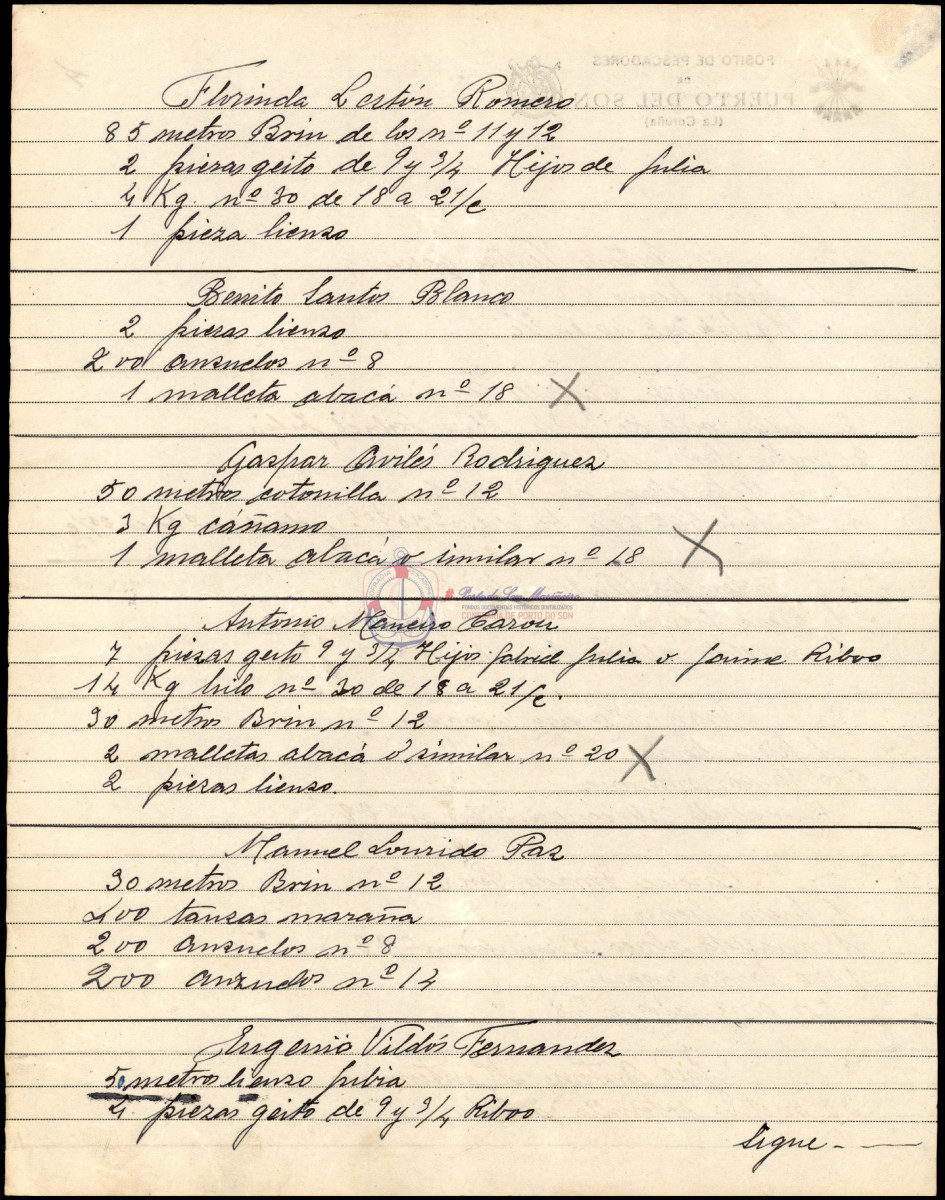 POSITO DE PESCADORES
DE
PUERTO DEL SON
(La Coruña)
Florinda Lestón Romero
85 metros Brin de los nº 11 y 12
2 piezas geito de 9 y 3/4 Hijos de Julia
4 Kg. nº 30 de 18 a 21/c
1 pieza lienzo
Benito Santos Blanco
2 piezas lienzo
200 anzuelos nº 8
1 malleta abacá nº 18 X
Gaspar Avilés Rodriguez
50 metros cotonilla nº 12
3 Kg cáñamo
1 malleta abacá o similar nº 18 X
Porto do Son Mariñeiro
FONDOS DOCUMENTAIS HISTÓRICOS DIXITALIZADOS
CONFRARÍA DE PORTO DO SON
Antonio Maneiro
7 piezas geito 9 y 3/4 Hijos Gabriel Julia o Jaime Riboo
14 Kg hilo nº 30 de 18 a 21/c.
30 metros Brin nº 12
2 malletas abacá ó similar nº 20 X
2 piezas lienzo.
Manuel Lourido Paz
30 metros Brin nº 12
400 tanzas maraña
200 anzuelos nº 8
200 anzuelos nº 14
Eugenio Fernandez
50 metro lienzo Julia
4 piezas geito de 9 y 3/4 Riboo
Sigue - —